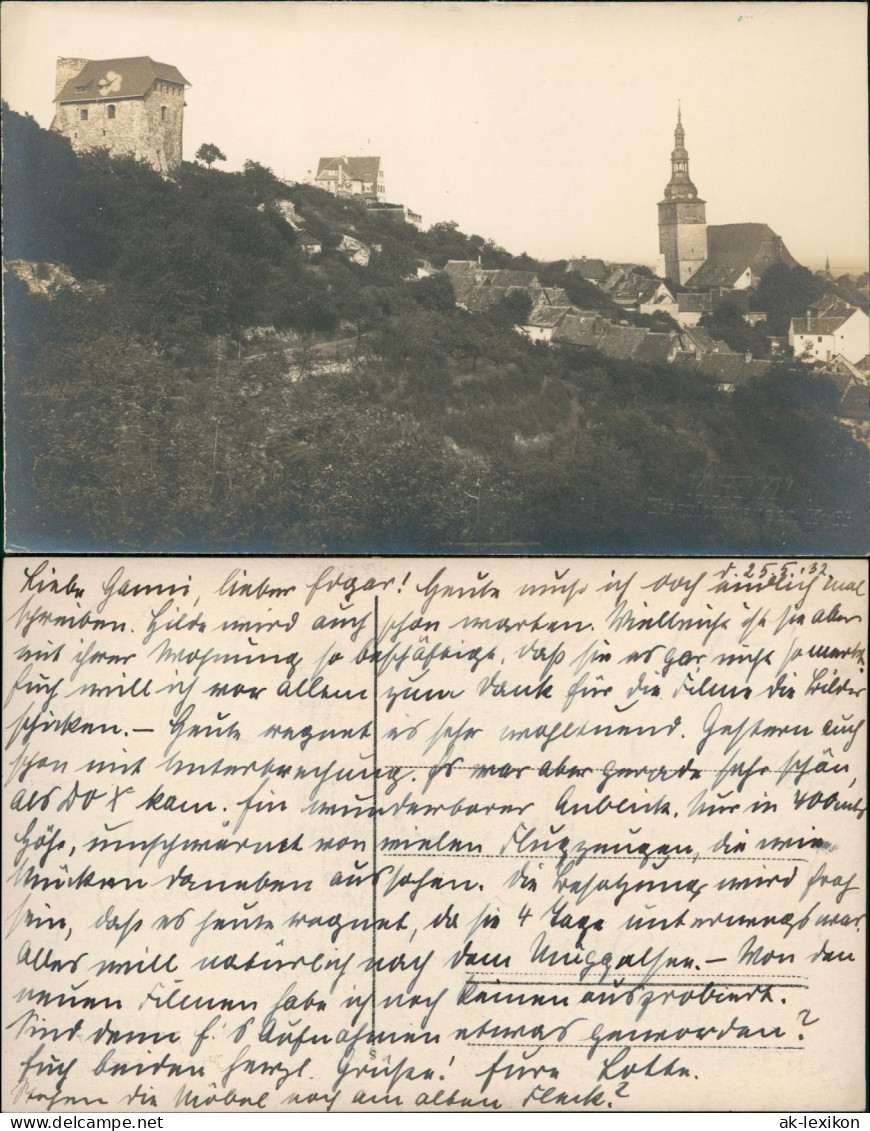 d. 25.5.32
Liebe Hanni, lieber Edgar! Heute muß ich doch endlich mal
schreiben. Hilde wird auch schon warten. Vielleicht ist sie aber
mit ihrer Wohnung so beschäftigt, daß sie es gar nicht so merkt.
Euch will ich vor allem zum Dank für die Filme die Bilder
schicken. – Heute regnet es sehr wohltuend. Gestern auch
schon mit Unterbrechung. Es war aber gerade sehr schön,
als DO X kam. Ein wunderbarer Anblick. Nur in 400 mtr
Höhe, umschwärmt von vielen Flugzeugen, die wie
Mücken daneben aussahen. Die Besatzung wird froh
sein, daß es heute regnet, da sie 4 Tage unterwegs war.
Alles will natürlich nach dem Müggelsee. – Von den
neuen Filmen habe ich noch keinen ausprobiert.
Sind denn E's Aufnahmen etwas geworden?
Euch beiden herzl. Grüße! Eure Lotte.
Stehen die Möbel noch am alten Fleck?
ak-lexikon